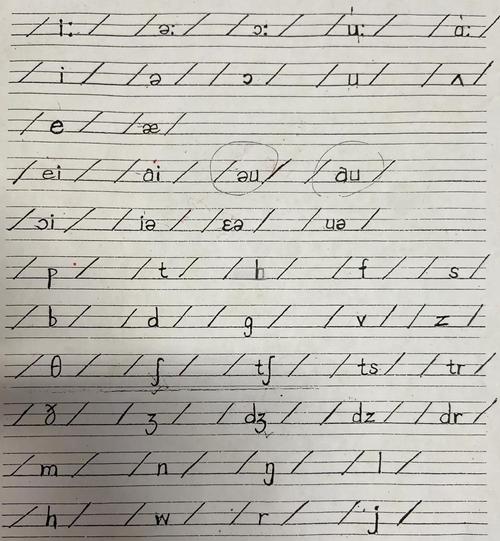 / i: / / ə: / / ɔ: / / u: / / ɑ: /
/ i / / ə / / ɔ / / u / / ʌ /
/ e / / æ /
/ ei / / ai / / əu / / au /
/ ɔi / / iə / / ɛə / / uə /
/ p / / t / / h / / f / / s /
/ b / / d / / g / / v / / z /
/ θ / / ʃ / / tʃ / / ts / / tr /
/ ð / / ʒ / / dʒ / / dz / / dr /
/ m / / n / / ŋ / / l /
/ h / / w / / r / / j /